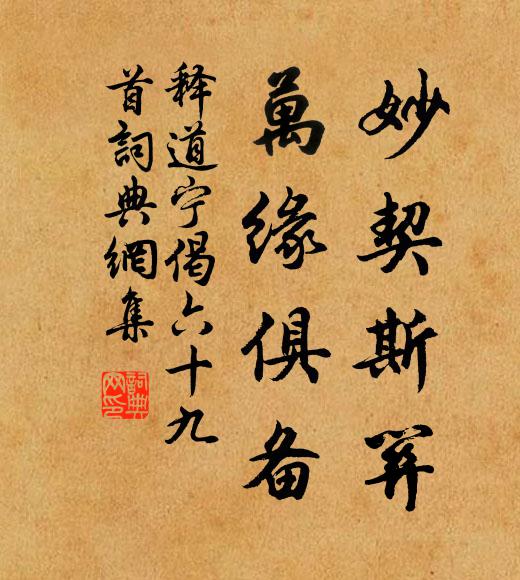 妙契斯
萬緣俱备
释道宁偈六十九
首詞典網集
詞典
网印